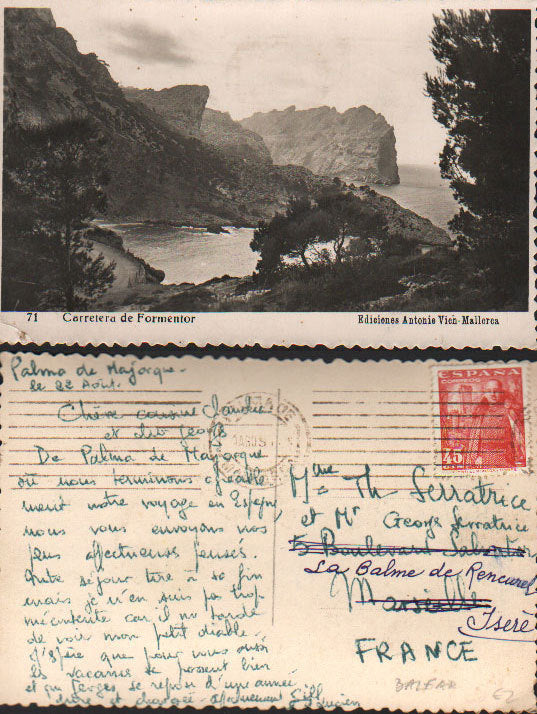 71 Carretera de Formentor
Ediciones Antonio Vich-Mallorca
Palma de Majorque -
le 22 Août.
Chère cousine Claudia
et
De Palma de Majorque
où nous terminons agréable
ment notre voyage en Espagne,
nous vous envoyons nos
plus affectueuses pensées.
Notre séjour tire à sa fin
mais je n'en suis pas trop
mécontente car il me tarde
de voir mon petit diable.
J'espère que pour vous aussi
les vacances se passent bien
et que Georges se repose d'une année
dure et chargée - affectueusement
Lucien
ESPAÑA
CORREOS
45
Mme Th Serratrice
et Mr George Serratrice
5 Boulevard
La Balme de Rencurel
Marseille
Isère
FRANCE
BALEAR